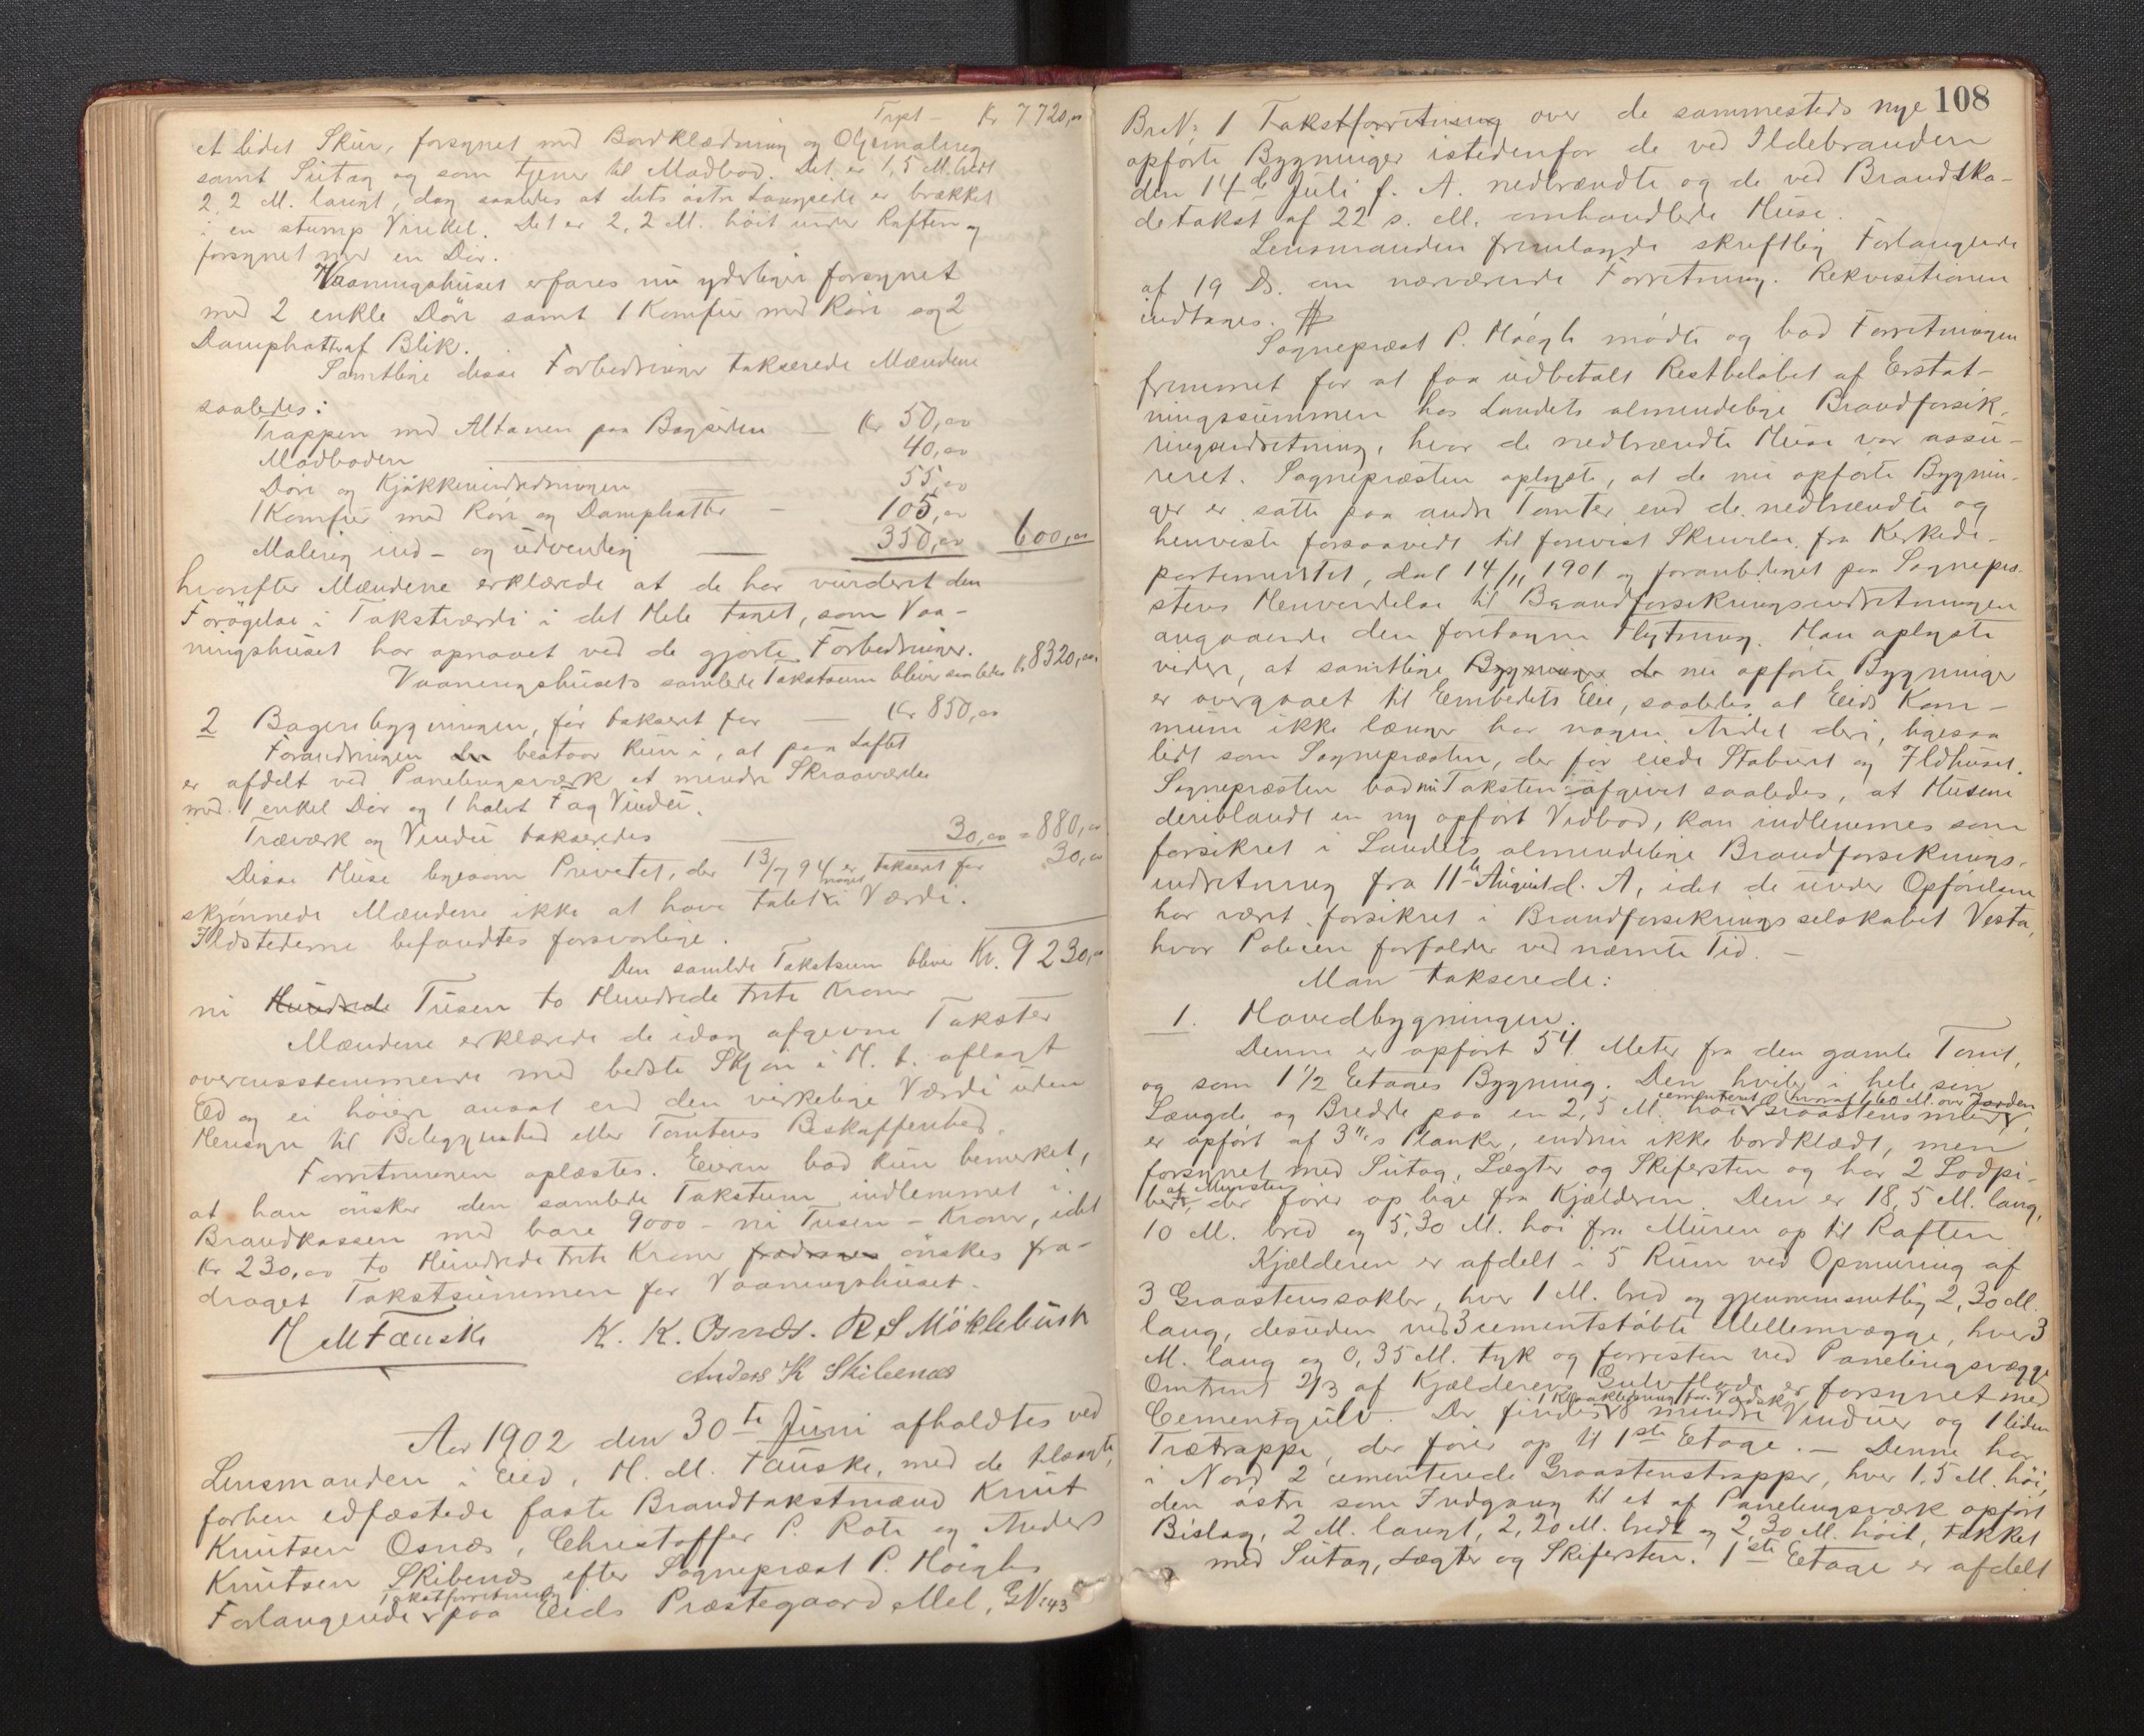 Trpt – Kr 7720,00
et lidet Skur, forsynet med Bordklædning og Oljemaling
samt Sutag og som tjener til Madbod. Det er 1,5 M. bredt
2,2 M. langt, dog saaledes at dets östre Langside er brækket
i en stump Vinkel. Det er 2,2 M. höit under Raften og
forsynet med en Dör.
Vaaningshuset erfares nu yderligere forsynet
med 2 enkle Döre samt 1 Komfur med Rör og 2
Damphatte af Blik.
Samtlige disse Forbedringer takserede Mændene
saaledes:
Trappen med Altanen paa Bagsiden — Kr 50,00
Madboden — 40,00
Döre og Kjökkenindredningen — 55,00
1 Komfur med Rör og Damphatte — 105,00
Maling ind- og udvendig — 350,00 600,00
hvorefter Mændene erklærede at de har vurderet den
Forögelse i Takstværdi i det Hele taget, som Vaa-
ningshuset har opnaaet ved de gjorte Forbedringer.
Vaaningshusets samlede Takstsum bliver saaledes Kr 8320,00
2 Bageribygningen, för takseret for — Kr 850,00
Forandringen bestaar kun i, at paa Loftet
er afdelt ved Panelingsværk et mindre Skraaværelse
med 1 enkel Dör og 1 halvt Fag Vindu.
Træværk og Vindu takseredes — 30,00 = 880,00
Disse Huse ligesom Privetet, der 13/7 94 er takseret for 30,00
skjönnede Mændene ikke at have tabt noget i Værdi.
Ildstederne befandtes forsvarlige.
Den samlede Takstsum bliver Kr. 9230,00
ni Hundrede Tusen to Hundrede treti Kroner
Mændene erklærede de idag afgivne Takster
overensstemmende med bedste Skjön i H. t. aflagt
Ed og ei höiere ansat end den virkelige Værdi uden
Hensyn til Beliggenhed eller Tomtens Beskaffenhed.
Forretningen oplæstes. Eieren bad kun bemerket,
at han önsker den samlede Takstsum indlemmet i
Brandkassen med bare 9000 – ni Tusen – Kroner, idet
Kr 230,00 to Hundrede treti Kroner fradrages önskes fra-
draget Takstsummen for Vaaningshuset.
H M Fauske K. K. Osnæs. R S Möklebust
Anders K Skibenæs
Aar 1902 den 30te Juni afholdtes ved
Lensmanden i Eid, H. M. Fauske, med de tilsagte,
forhen edfæstede faste Brandtakstmænd Knut
Knutsen Osnæs, Christoffer P. Rote og Anders
Knutsen Skibenæs efter Sognepræst P. Höeghs
Forlangende Takstforretning paa Eids Præstegaard Mel, GNr 143
108
BrNr 1 Takstforretning over de sammesteds nye
opförte Bygninger istedenfor de ved Ildebranden
den 14de Juli f. A. nedbrændte og de ved Brandska-
detakst af 22 s. M. omhandlede Huse.
Lensmanden fremlagde skriftlig Forlangende
af 19 Ds. om nærværende Forretning. Rekvisitionen
indtages. #
Sognepræst P. Höegh mödte og bad Forretningen
fremmet for at faa udbetalt Restbelöbet af Erstat-
ningssummen hos Landets almindelige Brandforsik-
ringsindretning, hvor de nedbrændte Huse var assu-
reret. Sognepræsten oplyste, at de nu opförte Bygnin-
ger er satte paa andre Tomter end de nedbrændte og
henviste forsaavidt til forevist Skrivelse fra Kirkede-
partementet, dat 14/11 1901 og foranlediget paa Sognepræ-
stens Henvendelse til Brandforsikringsindretningen
angaaende den foretagne Flytning. Han oplyste
videre, at samtlige Bygninger de nu opförte Bygninger
er overgaaet til Embedets Eie, saaledes at Eids Kom-
mune ikke længer har nogen Andel deri, ligesaa
lidt som Sognepræsten, der för eiede Stabur og Ildhuset.
Sognepræsten bad nu Taksten afgivet saaledes, at Husene
deriblandt en ny opfört Vedbod, kan indlemmes som
forsikret i Landets almindelige Brandforsikrings-
indretning fra 11te August d. A, idet de under Opförelsen
har vært forsikret i Brandforsikringsselskabet Vesta,
hvor Policen forfalder ved nævnte Tid. –
Man takserede:
1. Hovedbygningen.
Denne er opfört 54 Meter fra den gamle Tomt,
og som 1 1/2 Etages Bygning. Den hviler i hele sin
Længde og Bredde paa en 2,5 M. höi cementeret Graastensmur, hvoraf 1,60 M. over Jorden,
er opfört af 3" s Planke, endnu ikke bordklædt, men
forsynet med Sutag, Lægter og Skifersten og har 2 Lodpi-
ber af Mursten, der förer op lige fra Kjælderen. Den er 18,5 M. lang,
10 M. bred og 5,30 M. höi fra Muren op til Raften
Kjælderen er afdelt i 5 Rum ved Opmuring af
3 Graastenssokler, hver 1 M. bred og gjennemsnitlig 2,30 M.
lang, desuden ved 3 cementstöbte Mellemvægge, hver 3
M. lang og 0,35 M. tyk og forresten ved Panelingsvægge
Omtrent 2/3 af Kjælderens Gulvflade er forsynet med
Cementgulv. Der findes 1 Kloakledning for Vadsk, 8 mindre Vinduer og 1 liden
Trætrappe, der förer op til 1ste Etage. – Denne har
i Nord 2 cementerede Graastenstrapper, hver 1,5 M. höi,
den östre som Indgang til et af Panelingsværk opfört
Bislag, 2 M. langt, 2,20 M. bredt og 2,30 M. höit, takket
med Sutag, Lægter og Skifersten. 1ste Etage er afdelt